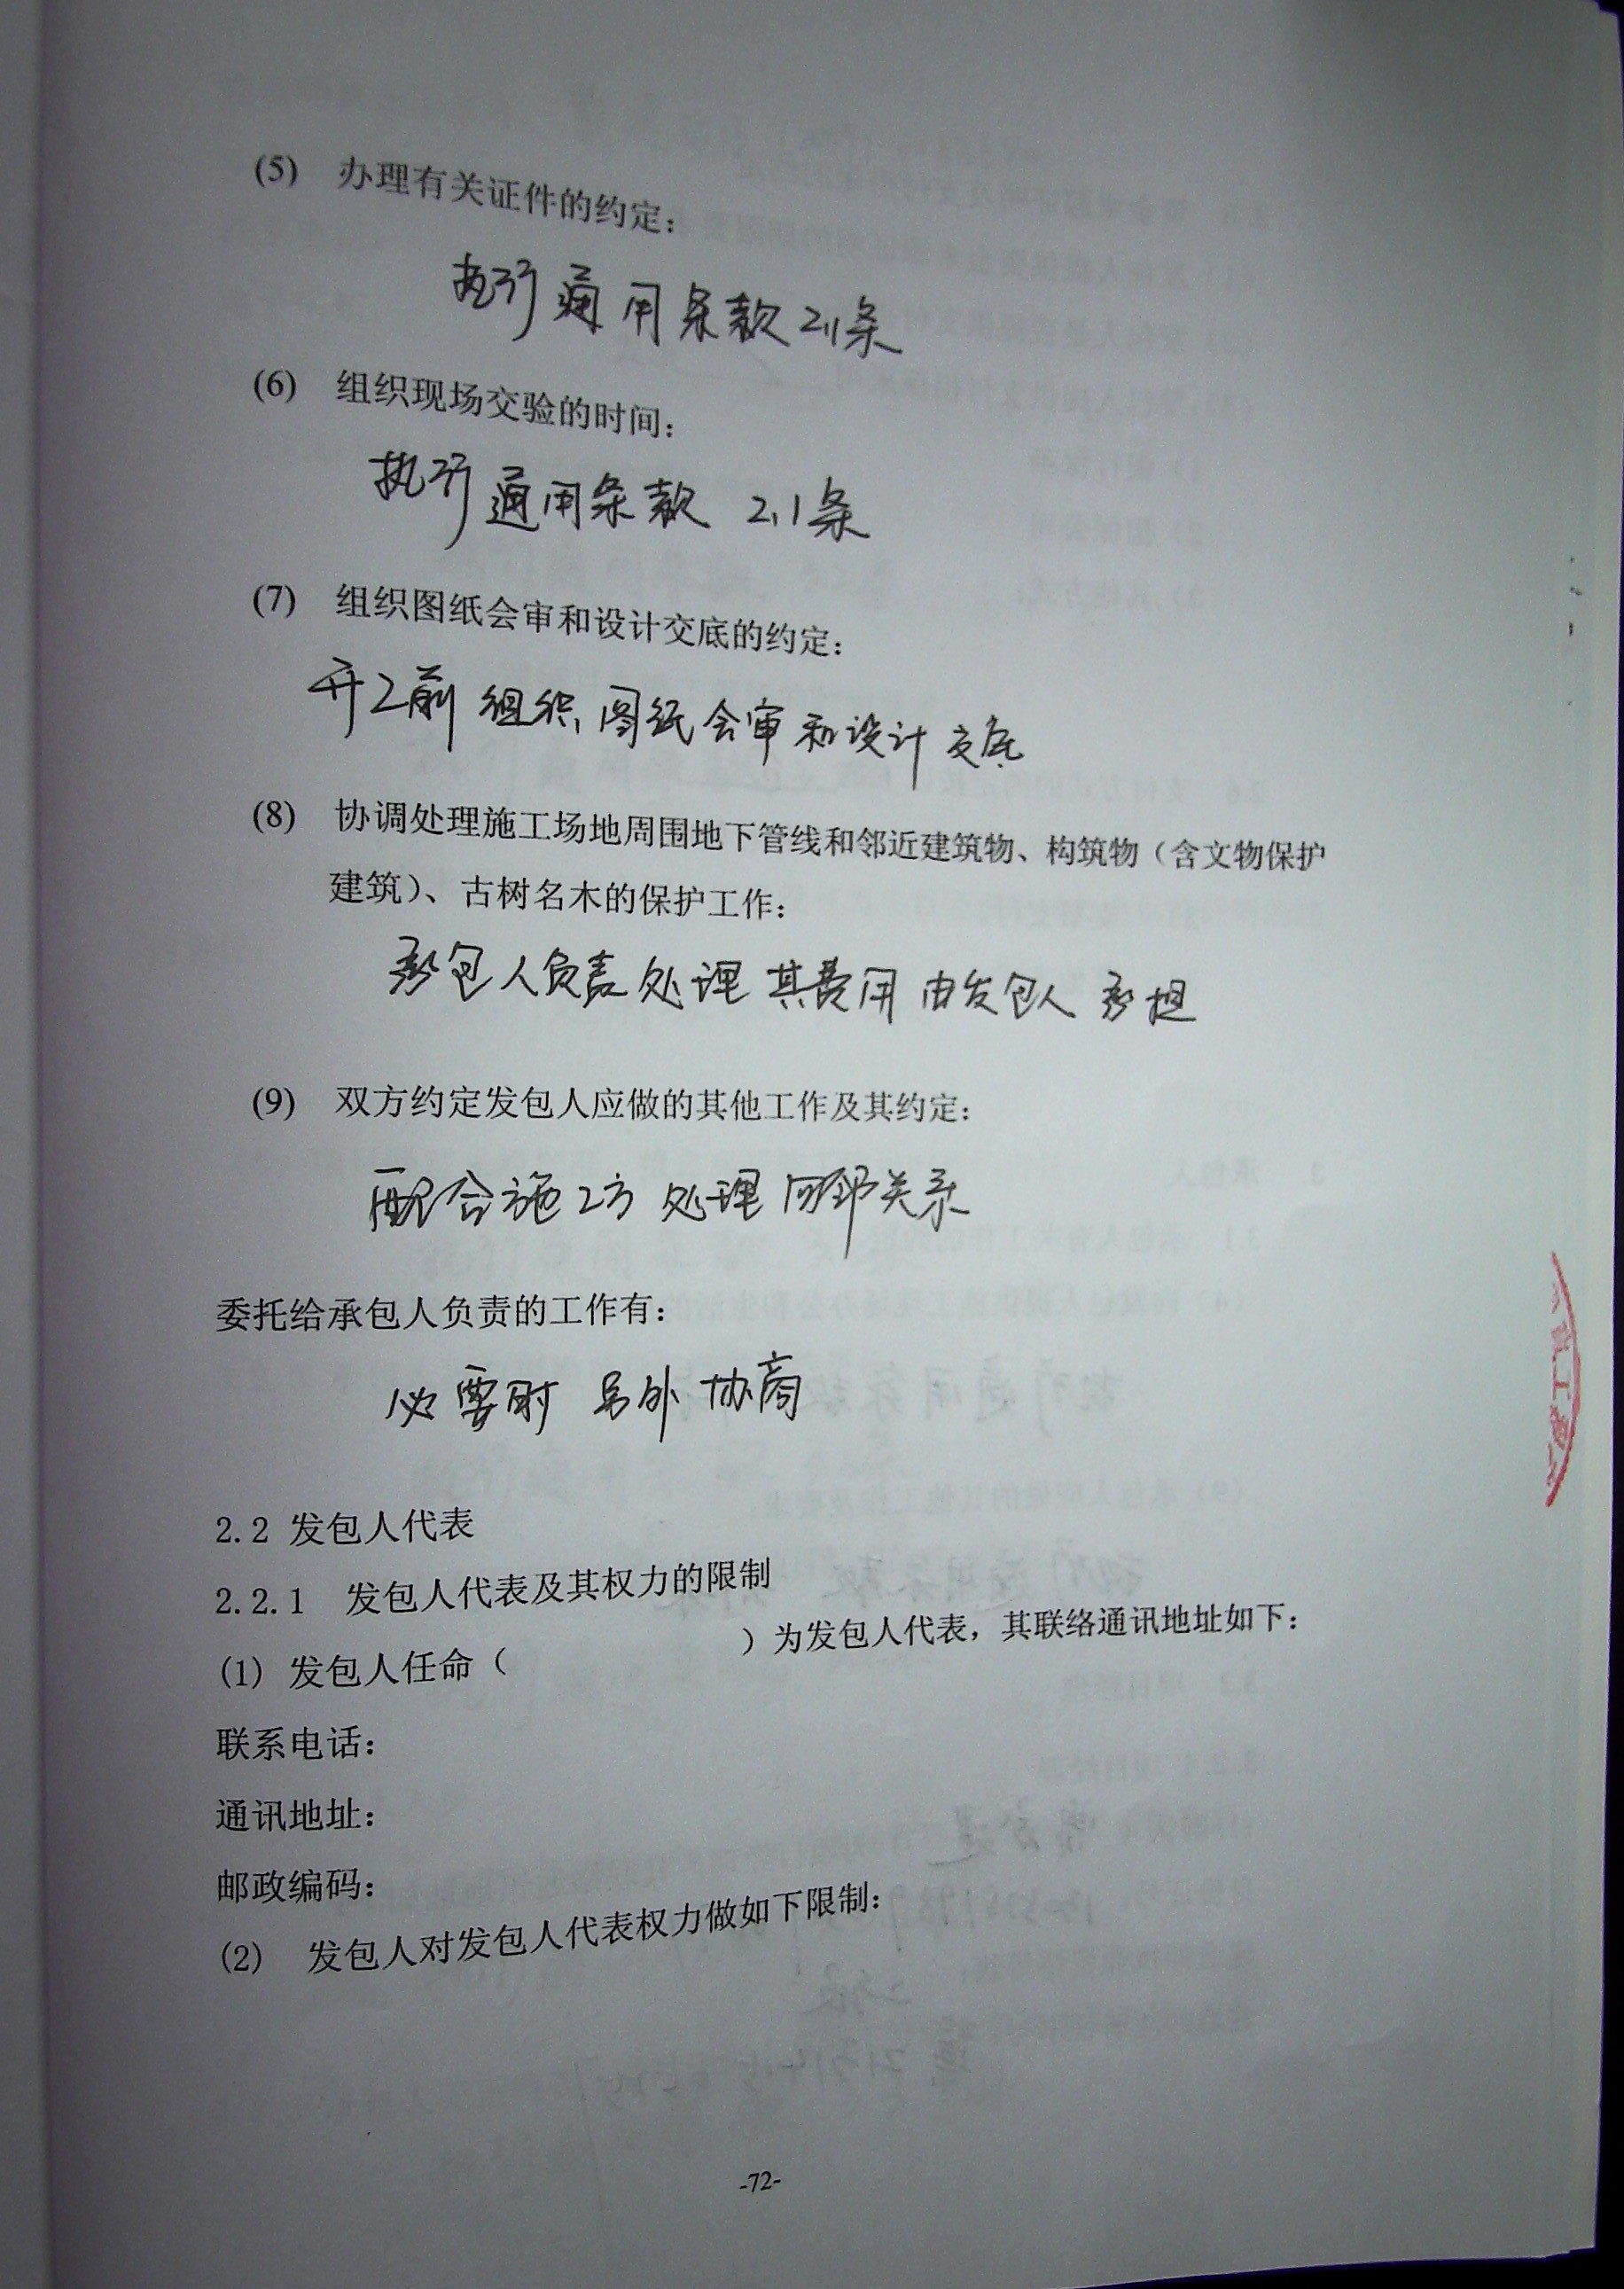 (5) 办理有关证件的约定：
执行通用条款2.1条
(6) 组织现场交验的时间：
执行通用条款 2.1条
(7) 组织图纸会审和设计交底的约定：
开工前组织图纸会审和设计交底
(8) 协调处理施工场地周围地下管线和邻近建筑物、构筑物（含文物保护
建筑）、古树名木的保护工作：
承包人负责处理 其费用由发包人承担
(9) 双方约定发包人应做的其他工作及其约定：
配合施工方处理四邻关系
委托给承包人负责的工作有：
必要时 另外协商
2.2 发包人代表
2.2.1 发包人代表及其权力的限制
(1) 发包人任命（ ）为发包人代表，其联络通讯地址如下：
联系电话：
通讯地址：
邮政编码：
(2) 发包人对发包人代表权力做如下限制：
-72-